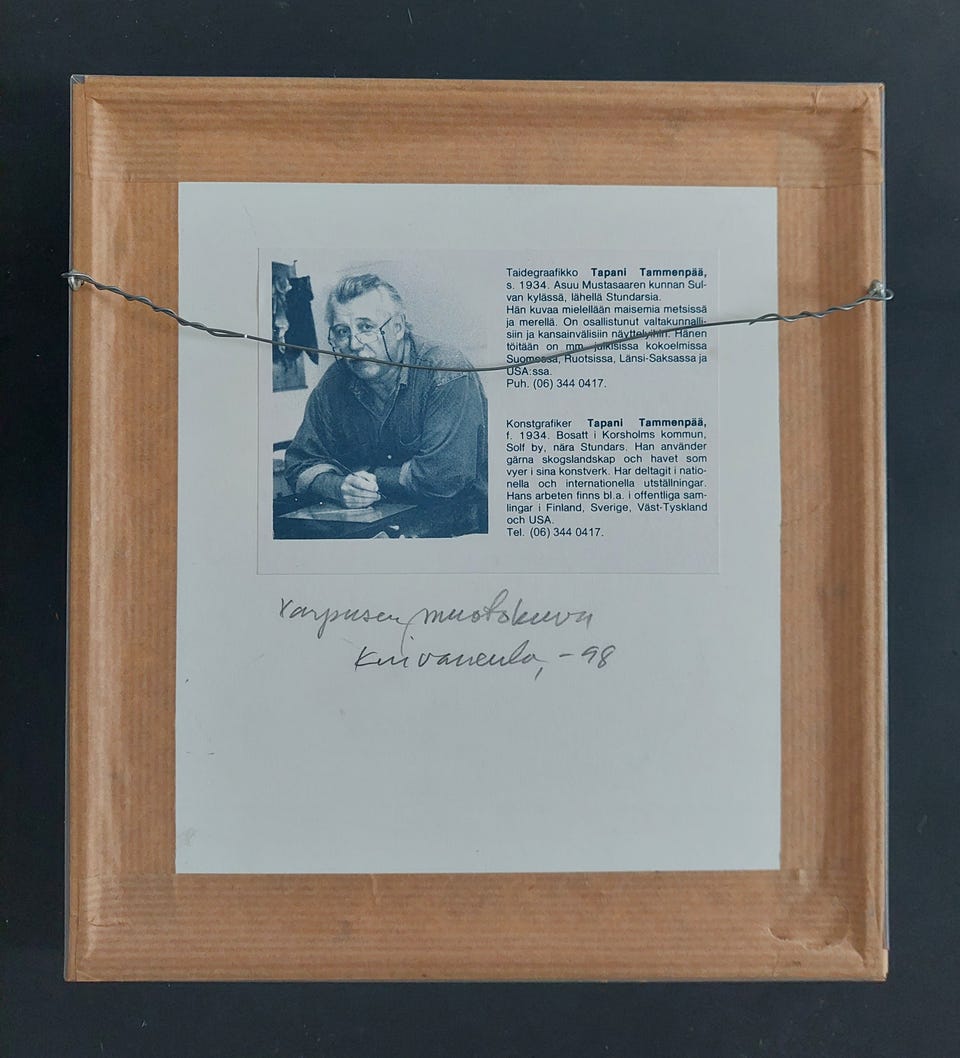 Taidegraafikko Tapani Tammenpää,
s. 1934. Asuu Mustasaaren kunnan Sul-
van kylässä, lähellä Stundarsia.
Hän kuvaa mielellään maisemia metsissä
ja merellä. On osallistunut valtakunnalli-
siin ja kansainvälisiin näyttelyihin. Hänen
töitään on mm. julkisissa kokoelmissa
Suomessa, Ruotsissa, Länsi-Saksassa ja
USA:ssa.
Puh. (06) 344 0417.
Konstgrafiker Tapani Tammenpää,
f. 1934. Bosatt i Korsholms kommun,
Solf by, nära Stundars. Han använder
gärna skogslandskap och havet som
vyer i sina konstverk. Har deltagit i natio-
nella och internationella utställningar.
Hans arbeten finns bl.a. i offentliga sam-
lingar i Finland, Sverige, Väst-Tyskland
och USA.
Tel. (06) 344 0417.
Varpusen muotokuva
Kuivaneula, -98